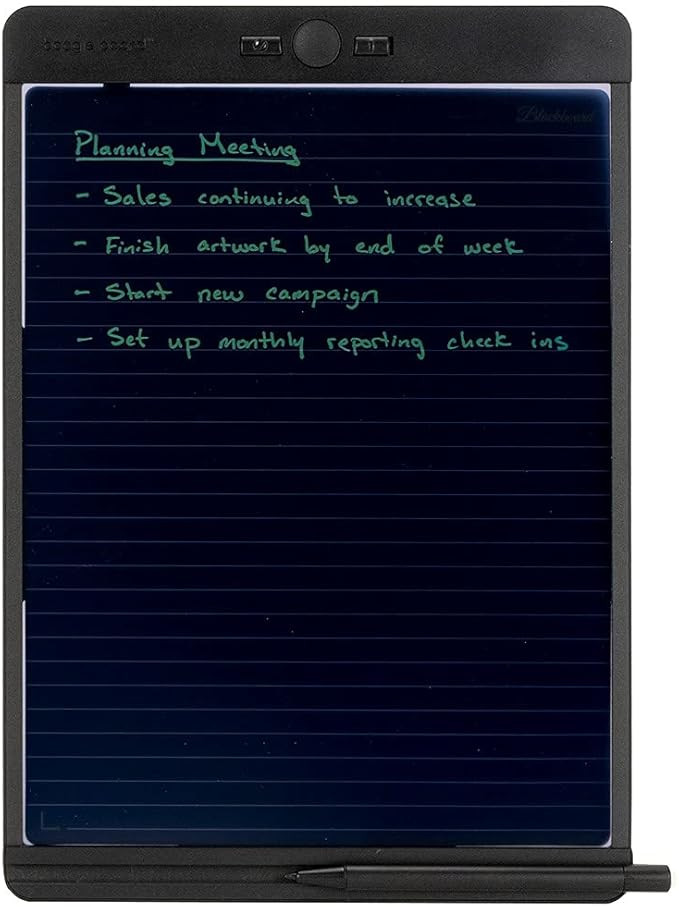 boogie board™
Blackboard
Planning Meeting
- Sales continuing to increase
- Finish artwork by end of week
- Start new campaign
- Set up monthly reporting check ins